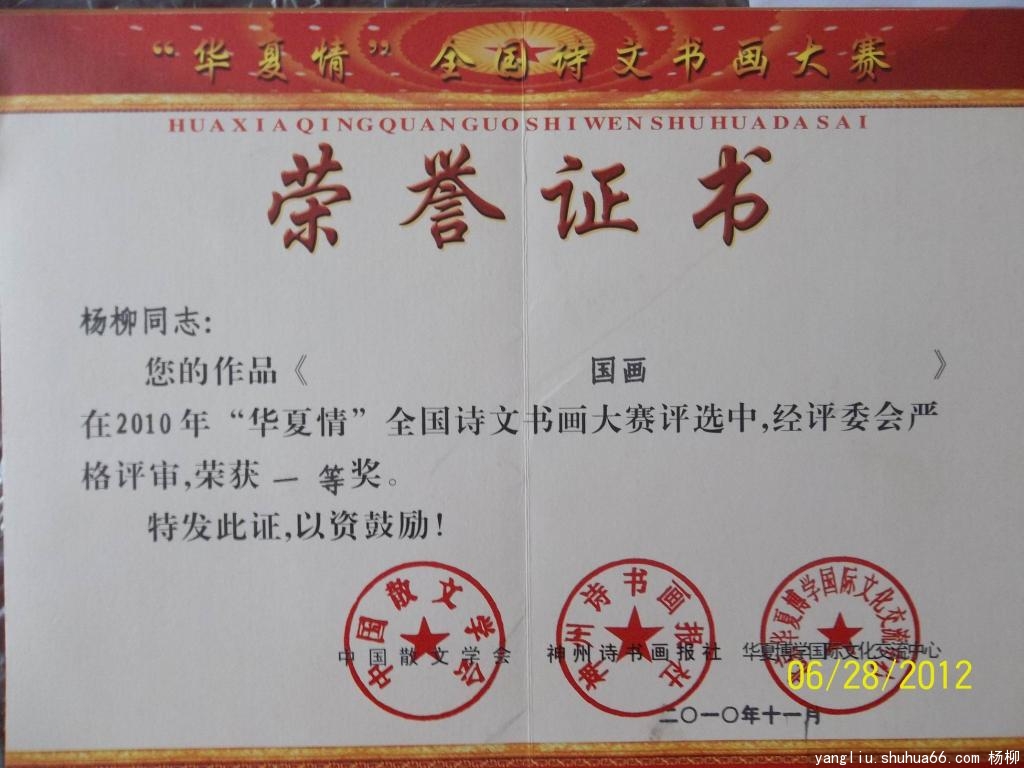 “华夏情”全国诗文书画大赛
HUAXIAQINGQUANGUOSHIWENSHUHUADASAI
荣誉证书
杨柳同志:
您的作品《国画》
在2010年“华夏情”全国诗文书画大赛评选中,经评委会严
格评审,荣获一等奖。
特发此证,以资鼓励!
中国散文学会
神州诗书画报社
中国散文学会 神州诗书画报社 华夏博学国际文化交流中心
06/28/2012
二〇一〇年十一月
yangliu.shuhua66.com 杨柳